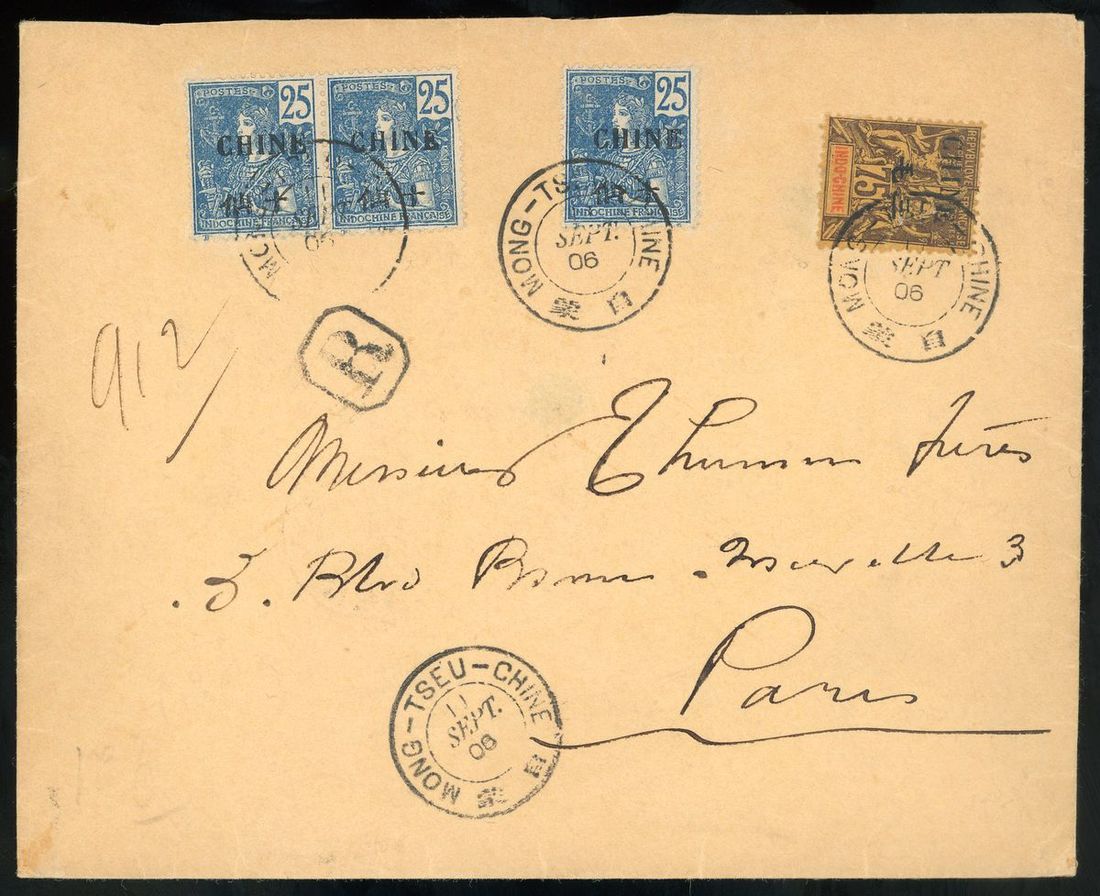 POSTES 25
CHINE
INDOCHINE FRANÇAISE
POSTES 25
CHINE
仙十
INDOCHINE FRANÇAISE
POSTES 25
CHINE
仙十
INDOCHINE FRANÇAISE
CHINE
INDO-CHINE
75
MONG-TSEU-CHINE
11
SEPT.
06
蒙自
MONG CHINE
11
SEPT
06
蒙自
R
912
Messieurs Thumin frères
3. Blvd Bonne-Nouvelle 3
Paris
MONG-TSEU-CHINE
11
SEPT.
06
蒙自